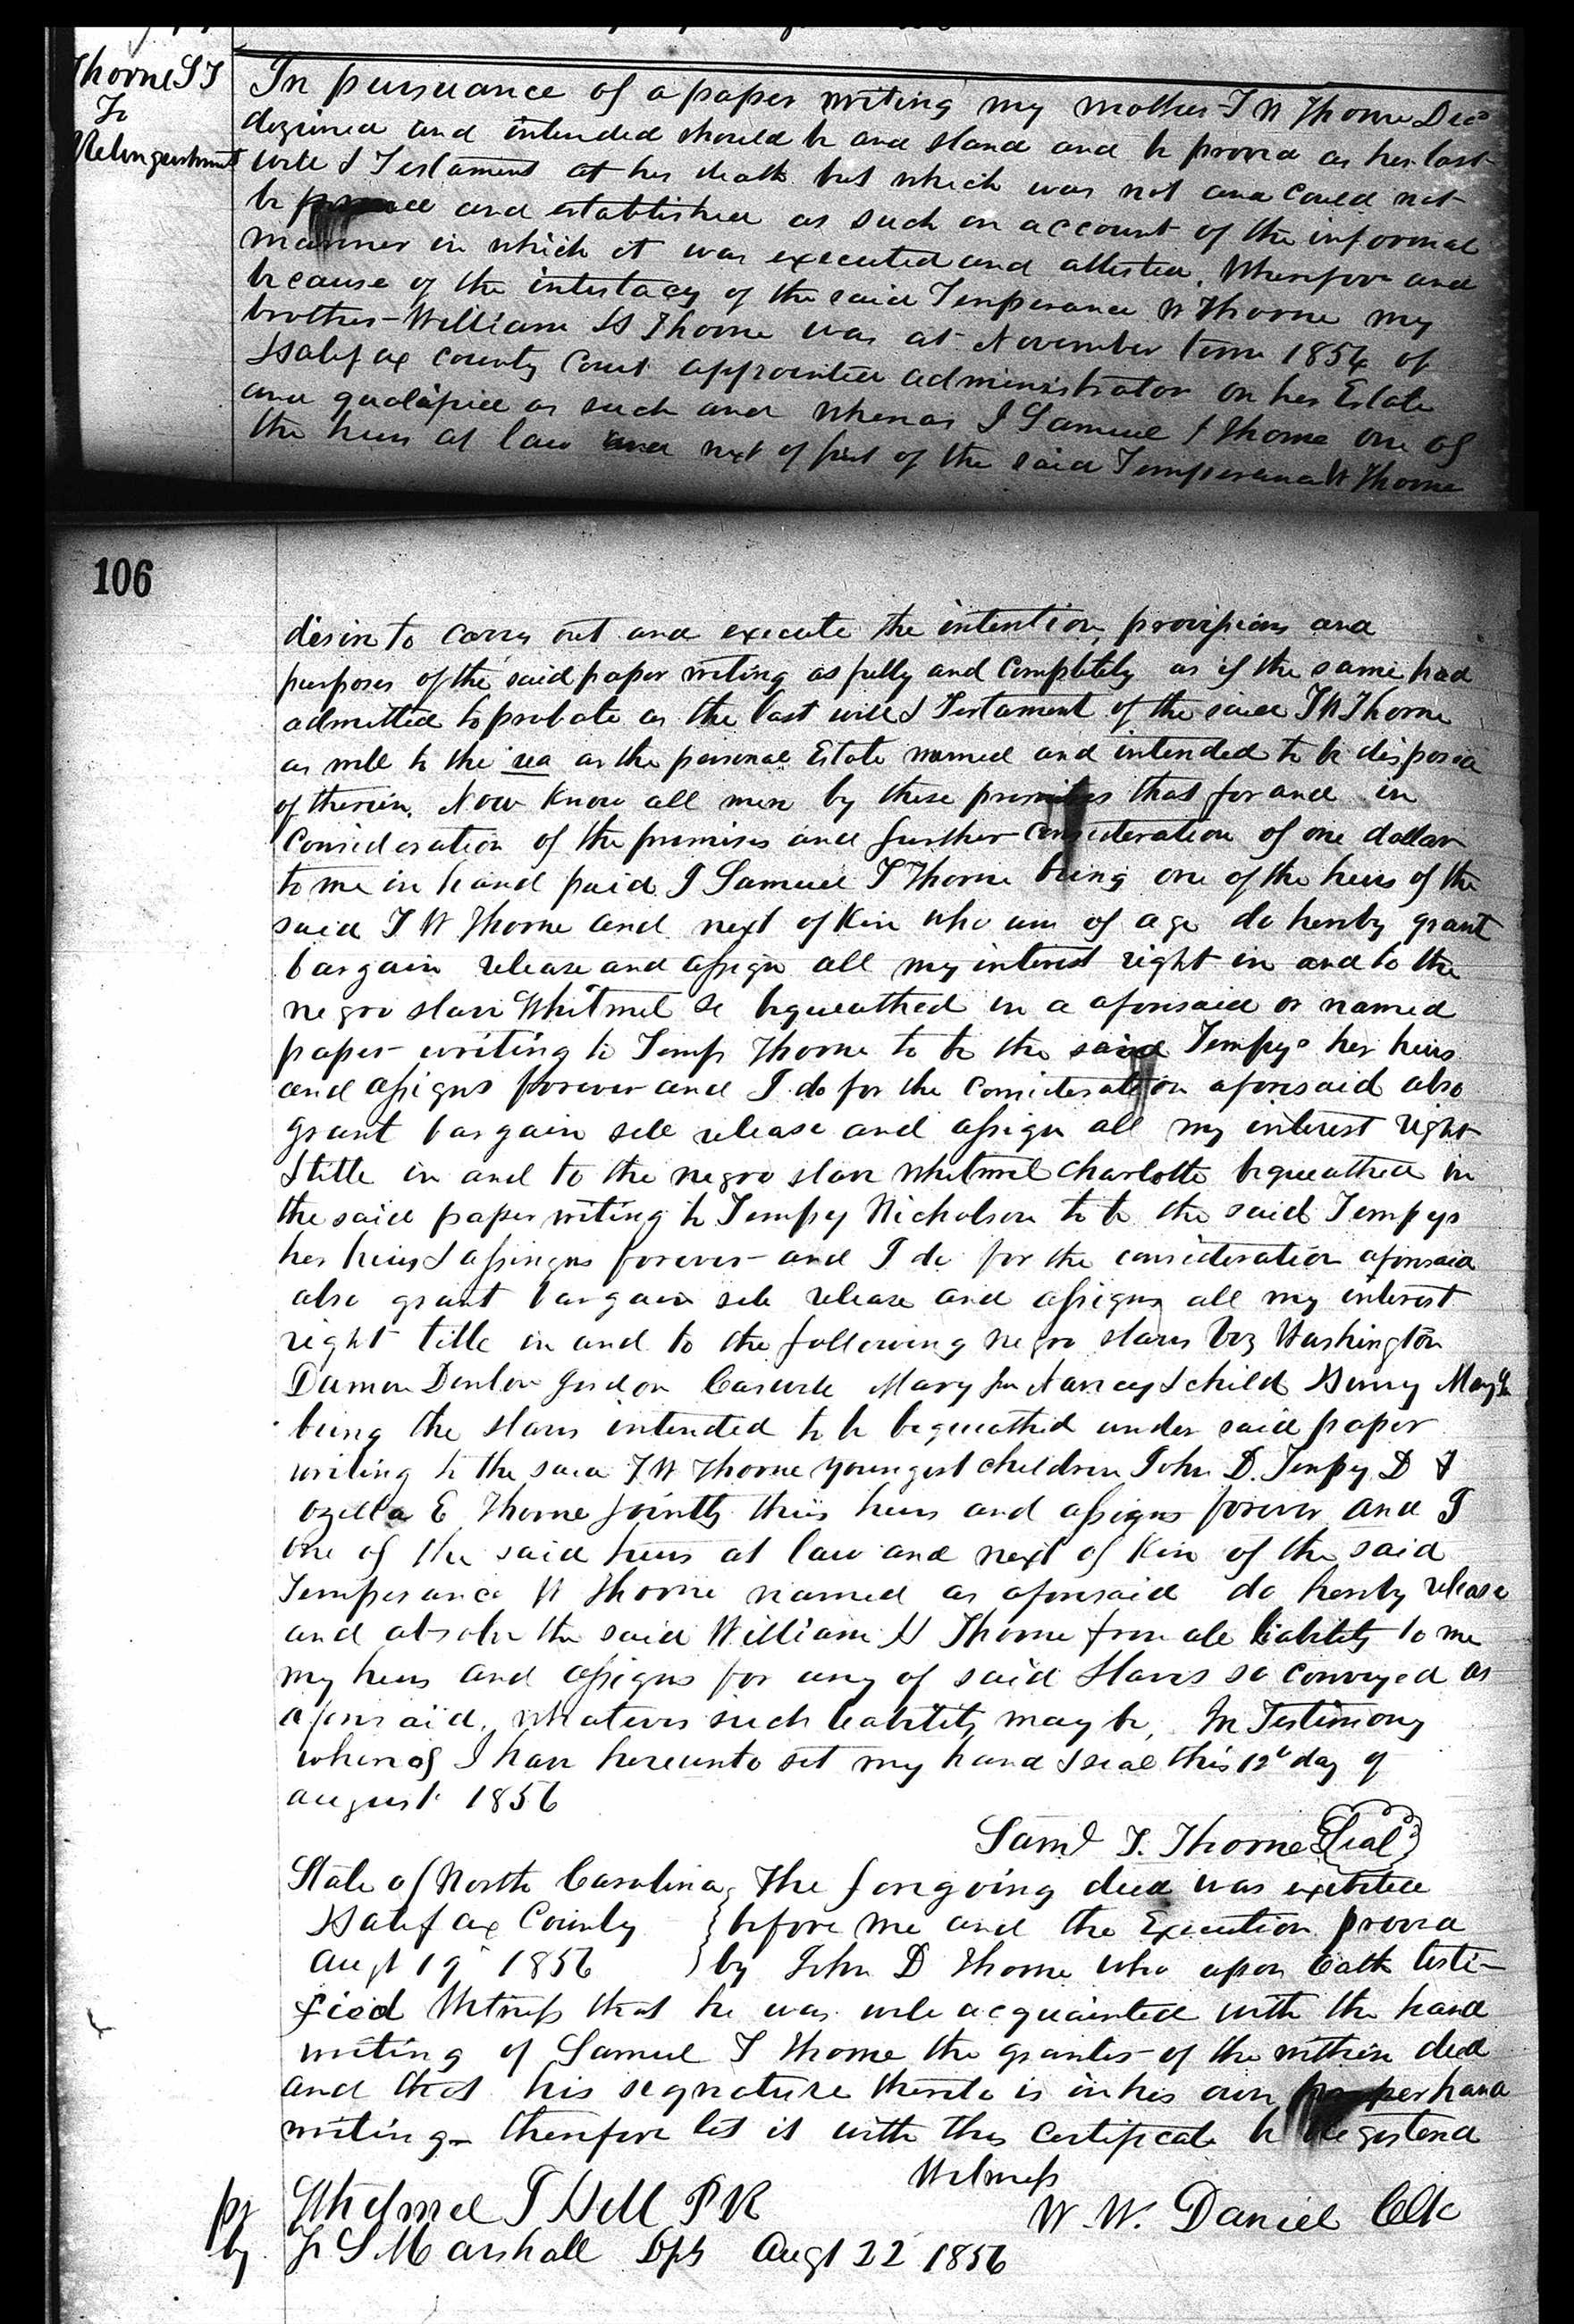 Thorne S T
To
Relinquishment
In pursuance of a paper writing my mother T W Thorne Decd
desired and intended should be and stand and be proved as her last
will & Testament at her death but which was not and could not
be and established as such on account of the informal
manner in which it was executed and attested. Wherefore and
because of the intestacy of the said Temperance W Thorne my
brother William H Thorne was at November term 1854 of
Halifax County Court appointed administrator on her Estate
and qualified as such and whereas I Samuel T Thorne one of
the heirs at law and next of kin of the said Temperance W Thorne
106
desire to carry out and execute the intention, provisions and
purposes of the said paper writing as fully and completely as if the same had
admitted to probate as the last will & Testament of the said T W Thorne
as well to the rea as the personal Estate named and intended to be disposed
of therein. Now Know all men by these presents that for and in
Consideration of the premises and further Consideration of one dollar
to me in hand paid I Samuel T Thorne being one of the heirs of the
said T W Thorne and next of Kin who am of age do hereby grant
bargain release and assign all my interest right in and to the
negro slave Whitmel se bequeathed in a aforesaid or named
paper writing to Temp Thorne to be the said Tempys her heirs
and assigns forever and I do for the Consideration aforesaid also
grant bargain sell release and assign all my interest right
& title in and to the negro slave Whitmel Charlotte bequeathed in
the said paper writing to Tempy Nicholson to be the said Tempys
her heirs & assingns forever and I do for the consideration aforesaid
also grant bargain sell release and assigns all my interest
right title in and to the following negro slaves viz Washington
Damon Denton Gordon Mary Jn Nancy & child Henry Mary
being the slaves intended to be bequeathed under said paper
writing to the said T W Thorne youngest children John D. Tempy D &
Ozella E Thorne jointly their heirs and assigns forever and I
one of the said heirs at law and next of Kin of the said
Temperance W Thorne named as aforesaid do hereby release
and absolve the said William H Thorne from all liability to me
my heirs and assigns for any of said slaves so conveyed as
aforesaid, whatever such liability may be, In Testimony
whereof I have hereunto set my hand & seal this 12th day of
august 1856
Saml T. Thorne Seal
State of North Carolina } The foregoing deed was exibited
Halifax County } before me and the Execution proved
Augt 19th 1856 } by John D Thorne who upon Oath testi-
fied Witness that he was well acquainted with the hand
writing of Samuel T Thorne the grantor of the within deed
and that his segnature thereto is in his own proper hand
writing - therefore let it with this certificate be Registered
Witness
pr Whitmel T Hill P R W. W. Daniel Clk
by J S Marshall Dpt Augt 22 1856